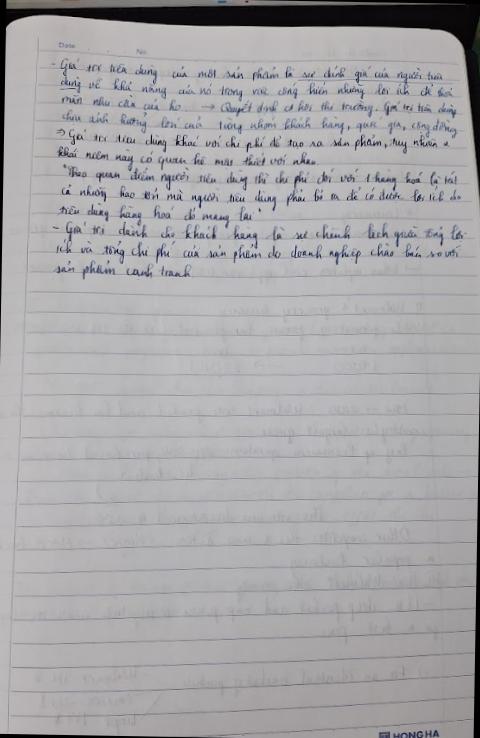 Date No.
- Giá trị tiêu dùng của một sản phẩm là sự đánh giá của người tiêu
dùng về khả năng của nó trong việc cống hiến những lợi ích để thoả
mãn nhu cầu của họ. → Quyết định cơ hội thị trường. Giá trị tiêu dùng
chịu ảnh hưởng lớn của từng nhóm khách hàng, quốc gia, cộng đồng.
⇒ Giá trị tiêu dùng khác với chi phí để tạo ra sản phẩm, tuy nhiên 2
khái niệm này có quan hệ mật thiết với nhau.
"Theo quan điểm người tiêu dùng thì chi phí đối với 1 hàng hoá là tất
cả những hao tổn mà người tiêu dùng phải bỏ ra để có được lợi ích do
tiêu dùng hàng hoá đó mang lại"
- Giá trị dành cho khách hàng là sự chênh lệch giữa tổng lợi
ích và tổng chi phí của sản phẩm do doanh nghiệp chào bán so với
sản phẩm cạnh tranh
HONG HA